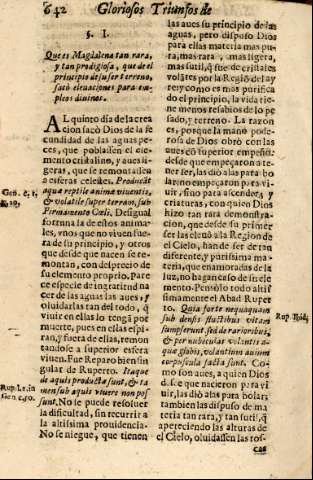 642 Gloriosos Triunfos de
§. I.
Que es Magdalena tan rara,
y tan prodigiosa, que de el
principio de su ser terreno,
sacò eleuaciones para em-
pleos diuinos.
AL quinto dia de la crea
cion sacò Dios de la fe
cundidad de las aguas pe-
ces, que poblassen el ele-
mento cristalino, y aues li-
geras, que se remontassen
a esferas celestes. Producãt
aquæ reptile animæ viuentis,
& volatile super terram, sub
Firmamento Cœli. Desigual
fortuna la de estos anima-
les, vnos que no viuen fue-
ra de su principio, y otros
que desde que nacen se re-
montan, con desprecio de
su elemento proprio. Pare
ce especie de ingratitud na
cer de las aguas las aues, y
oluidarlas tan del todo, q̃
viuir en ellas lo tengã por
muerte, pues en ellas espi-
ran, y fuera de ellas, remon
tandose a superior esfera
viuen. Fue Reparo bien sin
gular de Ruperto. Itaque
de aquis producta sunt, & ta
men sub aquis viuere non pos
sunt. No se puede resoluer
la dificultad, sin recurrir a
la altissima prouidencia.
No se niegue, que tienen
Gen. c. 1.
Rup. l. 1. in
Gen. c. 50.
las aues su principio de las
aguas, pero dispuso Dios
para ellas materia mas pu-
ra, mas rara, mas ligera,
mas sutil, q̃ fue de cristales
volãtes por la Regiõ del ay
re: y como es mas purifica
do el principio, la vida tie-
ne menos resabios de lo pe
sado, y terreno. La razon
es, porque la mano pode-
rosa de Dios obrò con las
aues cõ superior empeño:
desde que empeçaron a te-
ner ser, las diò alas para bo-
lar: no empeçaron para vi-
uir, sino para ascender; y
criaturas, con quien Dios
hizo tan rara demonstra-
cion, que desde su primer
ser las eleuò a la Region de
el Cielo, han de ser de tan
diferente, y purissima ma-
teria, que enamoradas de la
luz, no hagan caso de su ele
mento. Pensòlo todo altis
simamente el Abad Ruper
to. Quia forte nequaquam
sub densis fluctibus vitam
sumpserunt, sed de rarioribus,
& per nubeculas volantis a-
quæ globis, volantium animæ
corpuscula facta sunt. Co-
mo son aues, a quien Dios
desde que nacieron para vi
uir, las diò alas para bolar;
tambien las dispuso de ma
teria tan rara, y tan sutil, q̃
apeteciendo las alturas de
el Cielo, oluidassen las ros-
Rup. Ibid.
cas